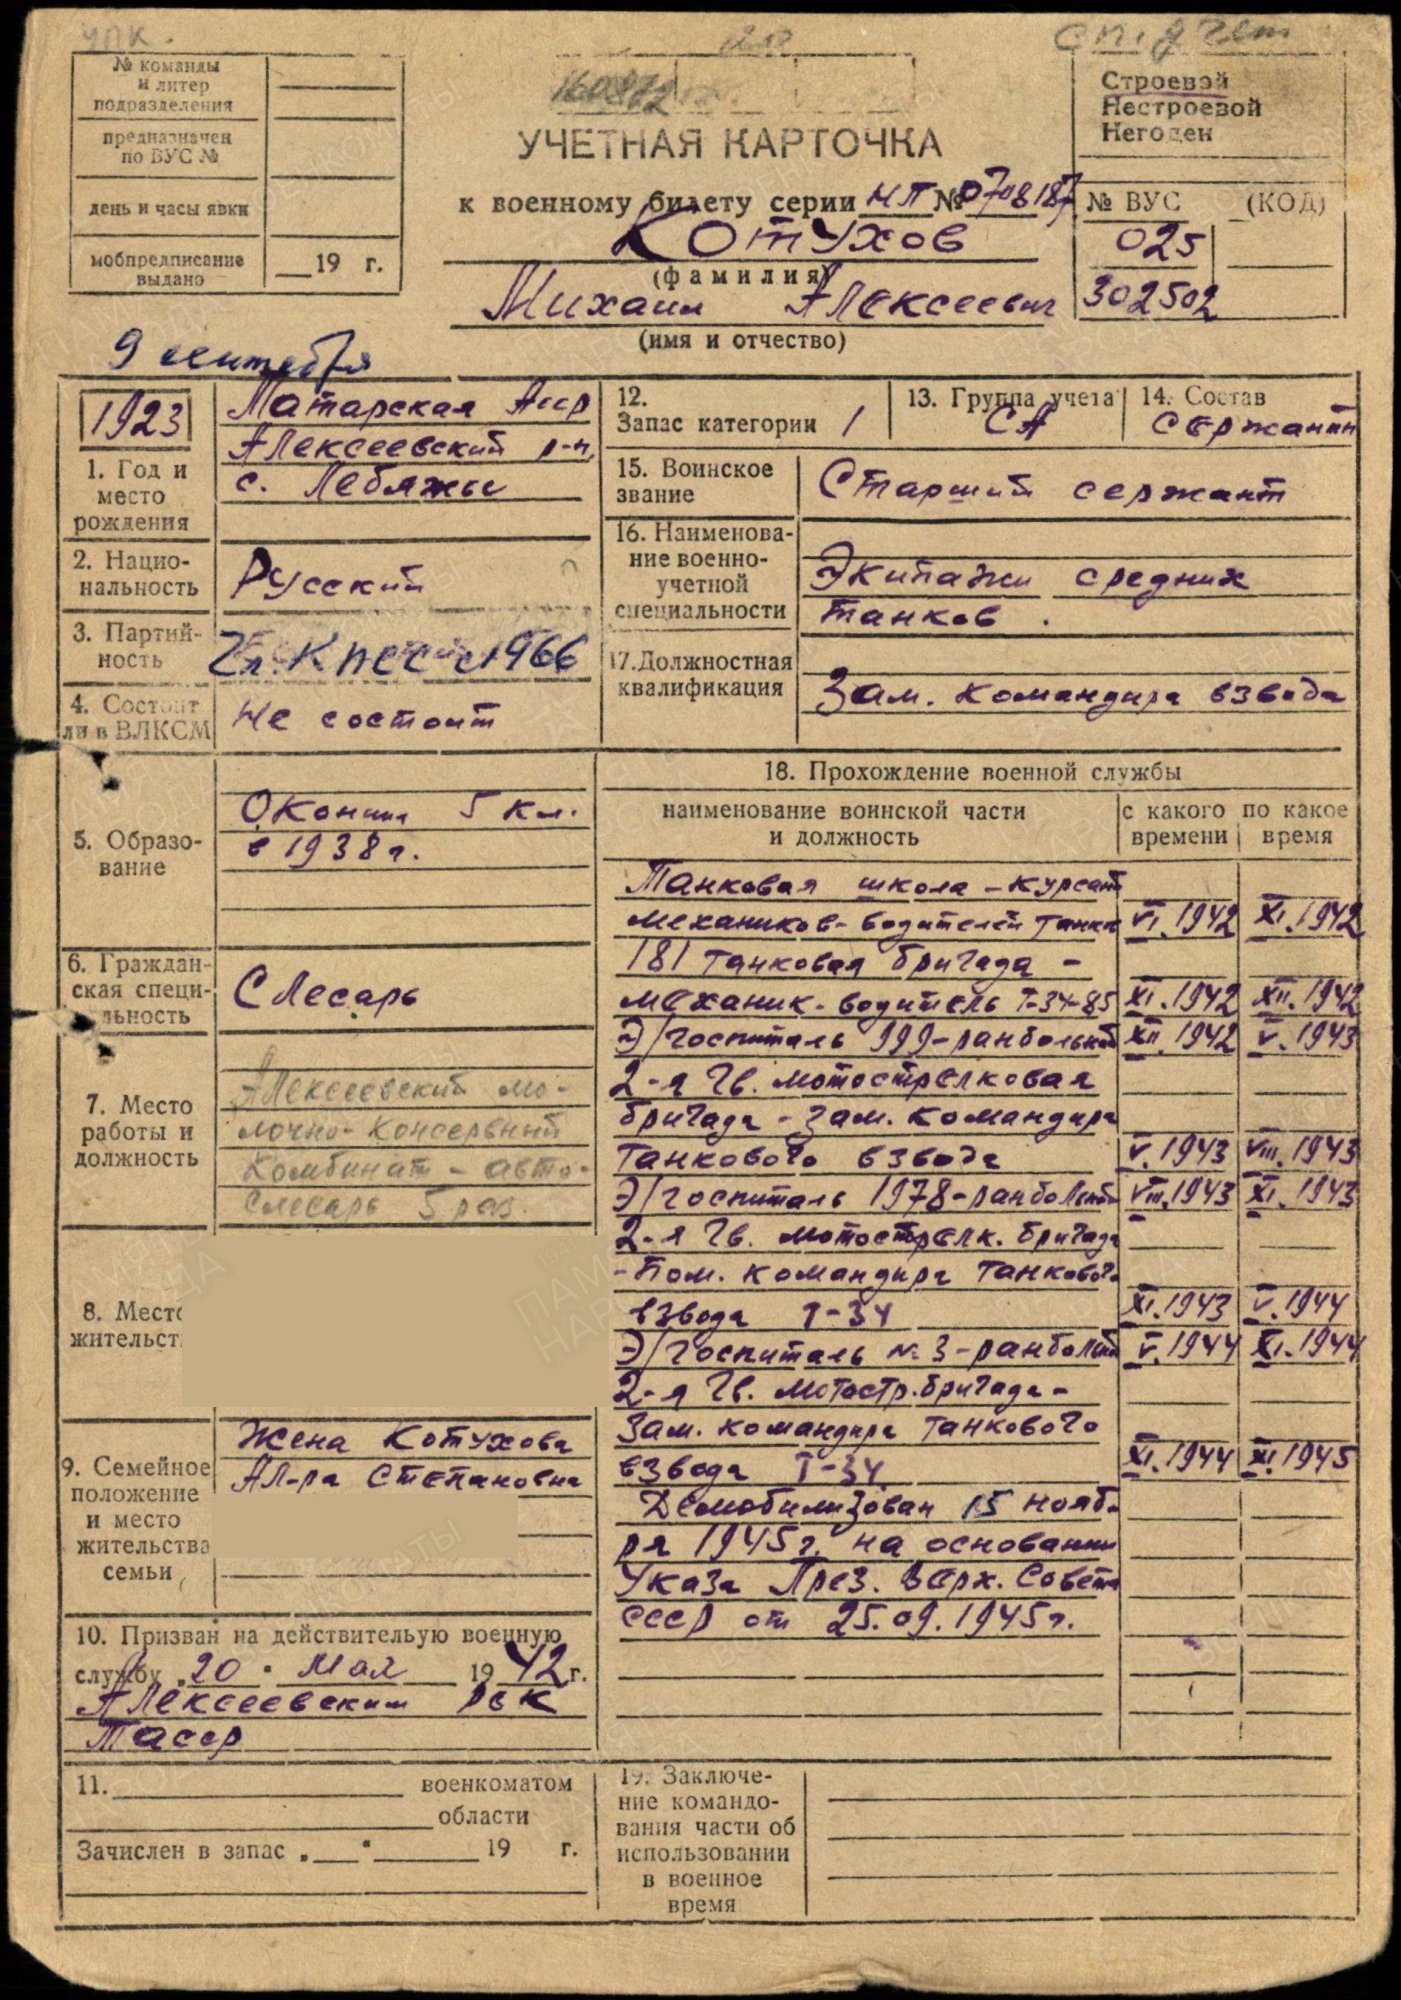 УПК.
сп. учет
№ команды
и литер
подразделения
предназначен
по ВУС №
день и часы явки
мобпредписание
выдано
19 г.
УЧЕТНАЯ КАРТОЧКА
к военному билету серии НП № 0708187
Котухов
(фамилия)
Михаил Алексеевич
(имя и отчество)
Строевой
Нестроевой
Негоден
№ ВУС (КОД)
025
302502
9 сентября
1923
1. Год и
место
рождения
Татарская Асср
Алексеевский р-н,
с. Лебяжье
2. Нацио-
нальность
Русский
3. Партий-
ность
Чл. КПСС с 1966
4. Состоит
ли в ВЛКСМ
Не состоит
5. Образо-
вание
Окончил 5 кл.
в 1938 г.
6. Граждан-
ская специ-
льность
Слесарь
7. Место
работы и
должность
Алексеевский мо-
лочно-консервный
комбинат - авто-
слесарь 5 раз.
8. Мест
жительст
9. Семейное
положение
и место
жительства
семьи
Жена Котухова
Ал-ра Степановна
10. Призван на действительую военную
службу „20" мая 1942 г.
Алексеевским рвк
Тасср
11. военкоматом
области
Зачислен в запас „ " 19 г.
12.
Запас категории 1
13. Группа учета
СА
14. Состав
сержанты
15. Воинское
звание
Старший сержант
16. Наименова-
ние военно-
учетной
специальности
Экипажи средних
танков.
17. Должностная
квалификация
Зам. командира взвода
18. Прохождение военной службы
наименование воинской части
и должность
с какого
времени
по какое
время
Танковая школа - курсант
механиков-водителей танка VI.1942 XI.1942
181 танковая бригада -
механик-водитель Т-34-85 XI.1942 XII.1942
Э/госпиталь 999-ранбольной XII.1942 V.1943
2-я Гв. мотострелковая
бригада - зам. командира
танкового взвода V.1943 VIII.1943
Э/госпиталь 1978-ранбольной VIII.1943 XI.1943
2-я Гв. мотострелк. бригада
- пом. командира танкового
взвода Т-34 XI.1943 V.1944
Э/госпиталь № 3-ранбольной V.1944 XI.1944
2-я Гв. мотостр. бригада -
Зам. командира танкового
взвода Т-34 XI.1944 XI.1945
Демобилизован 15 нояб-
ря 1945 г. на основании
Указа През. Верх. Совета
СССР от 25.09.1945 г.
19. Заключе-
ние командо-
вания части об
использовании
в военное
время